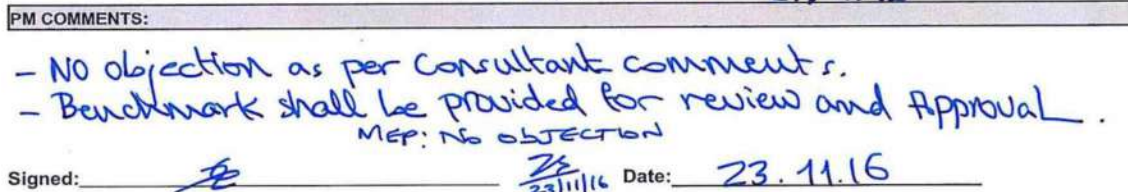 PM COMMENTS:
- No objection as per Consultant comments.
- Benchmark shall be provided for review and Approval.
MEP: NO OBJECTION
Signed: Date: 23.11.16
23/11/16